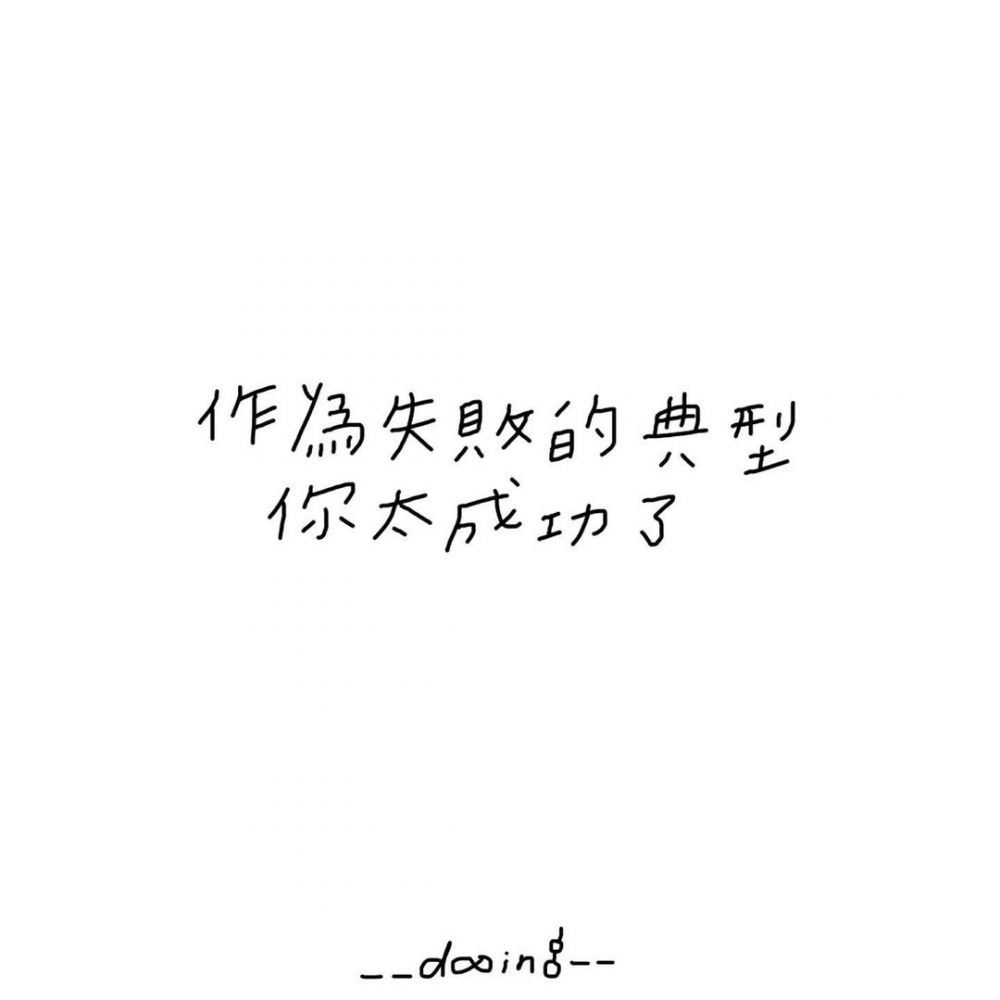 作為失敗的典型
你太成功了
__dooing--